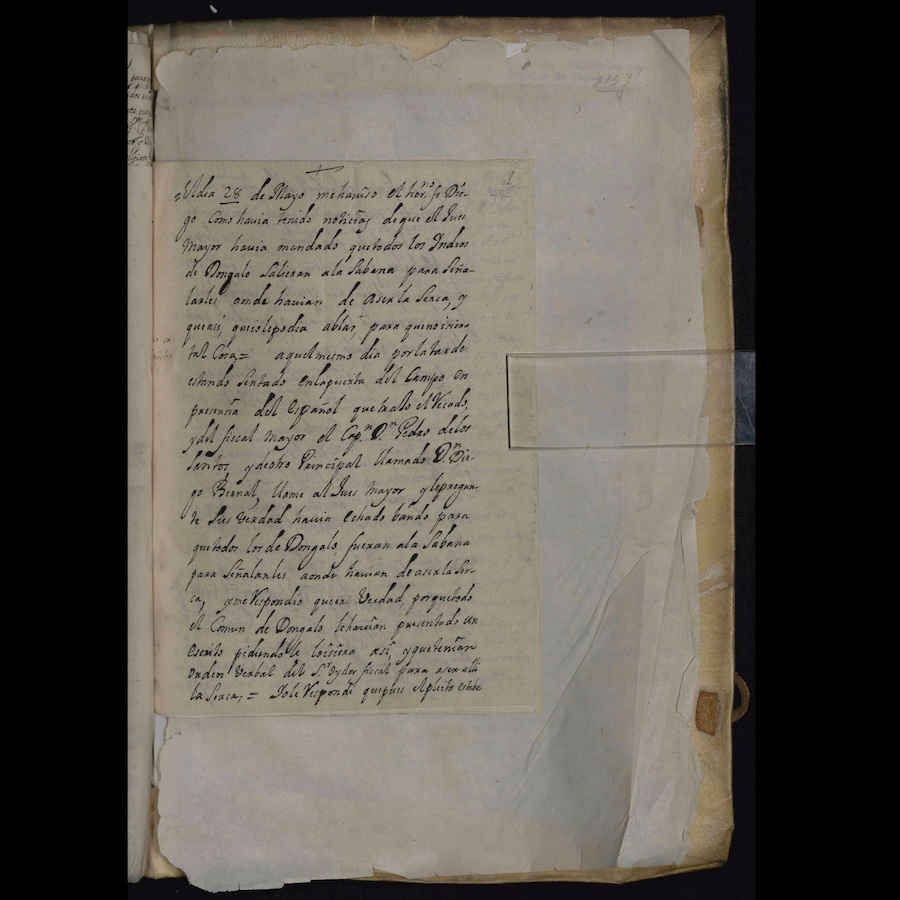 El dia 28 de Mayo me haviso el hor.no fr Die-
go como havia tenido noticias de que el Jues
Mayor havia mandado que todos los Indios
de Dongalo salieran a la Sabana para seña-
larles aonde havian de aser la serca, y
que asi, que io le podia ablar, para que no isiera
tal cosa,= aquel mesmo dia por la tarde
estando sentado en la puerta del Campo en
presensia del Español que traio el Recado,
y del fiscal mayor el Cap.n D.n Pedro de los
Santos, y de otro Principal llamado D.n Die-
go Bernal, llame al Jues mayor y le pregun-
te si es verdad havia echado bando para
que todos los de Dongalo fueran a la Sabana
para señalarles aonde havian de aser la ser-
ca, y me Respondio que era verdad, porque todo
el Comun de Dongalo le havian presentado un
escrito pidiendole lo isiera asi, y que tenian
orden verbal del S.r oydor fiscal para aser alli
la serca,= Io le Respondi que pues el pleito estaba